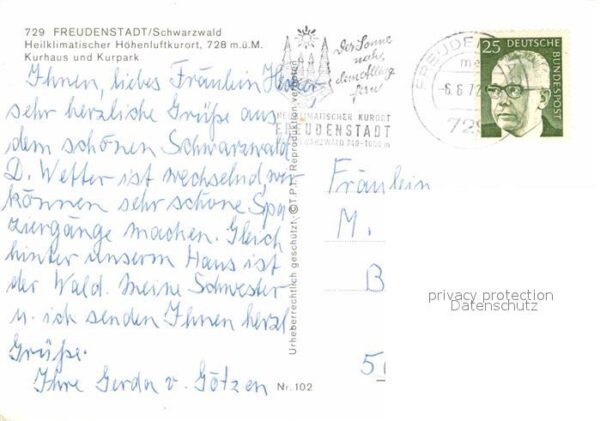 729 FREUDENSTADT/Schwarzwald
Heilklimatischer Höhenluftkurort, 728 m.ü.M.
Kurhaus und Kurpark
Ihnen, liebes Fräulein
sehr herzliche Grüße aus
dem schönen Schwarzwald.
D. Wetter ist wechselnd, wir
können sehr schöne Spa
ziergänge machen. Gleich
hinter unserm Haus ist
der Wald. Meine Schwester
u. ich senden Ihnen herzl.
Grüße.
Ihre Gerda v. Götzen
Nr. 102
Urheberrechtlich geschützt. © T.P.I. Reproduktion verboten
Der Sonne
nah,
dem Alltag
fern
HEILKLIMATISCHER KURORT
FREUDENSTADT
SCHWARZWALD 740-1000 m
FREUDEN
-6.6.72
729
25 DEUTSCHE
BUNDESPOST
Fräulein
M.
B
5
privacy protection
Datenschutz